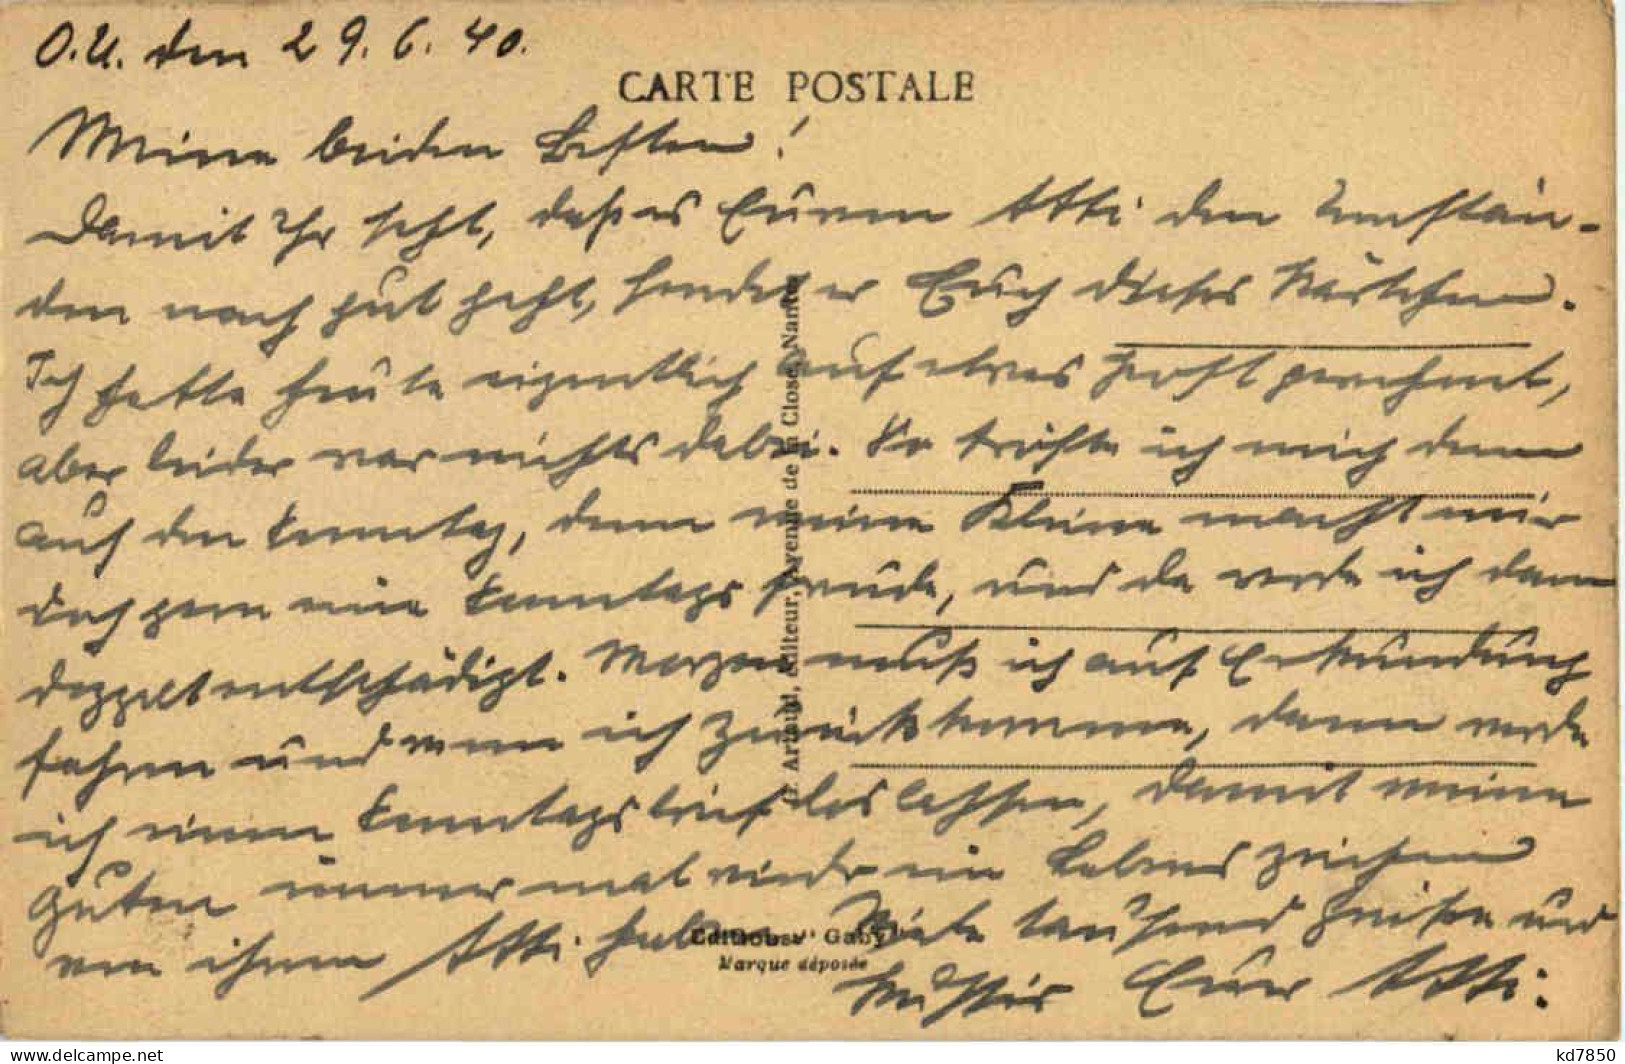 O.U. den 29.6.40.
CARTE POSTALE
Meine beiden Besten!
Damit Ihr seht, daß es Eurem Atti den Umstän-
den nach gut geht, sendet er Euch dieses Kärtchen.
Ich hatte heute eigentlich auf etwas Post gerechnet,
aber leider war nichts dabei. So tröste ich mich denn
auf den Sonntag, denn meine Kleine macht mir
doch gern eine Sonntagsfreude, und da werde ich dann
doppelt entschädigt. Morgen muß ich auf Erkundung
fahren und wenn ich zurückkomme, dann werde
ich einen Sonntagsbrief loslassen, damit meine
Guten immer mal wieder ein Lebenszeichen
von ihrem Atti haben. Viele tausend Grüße und
Küsse Euer Atti.
Artaud, Editeur, Avenue de la Close, Nantes
Editions "Gaby"
Marque déposée
kd7850